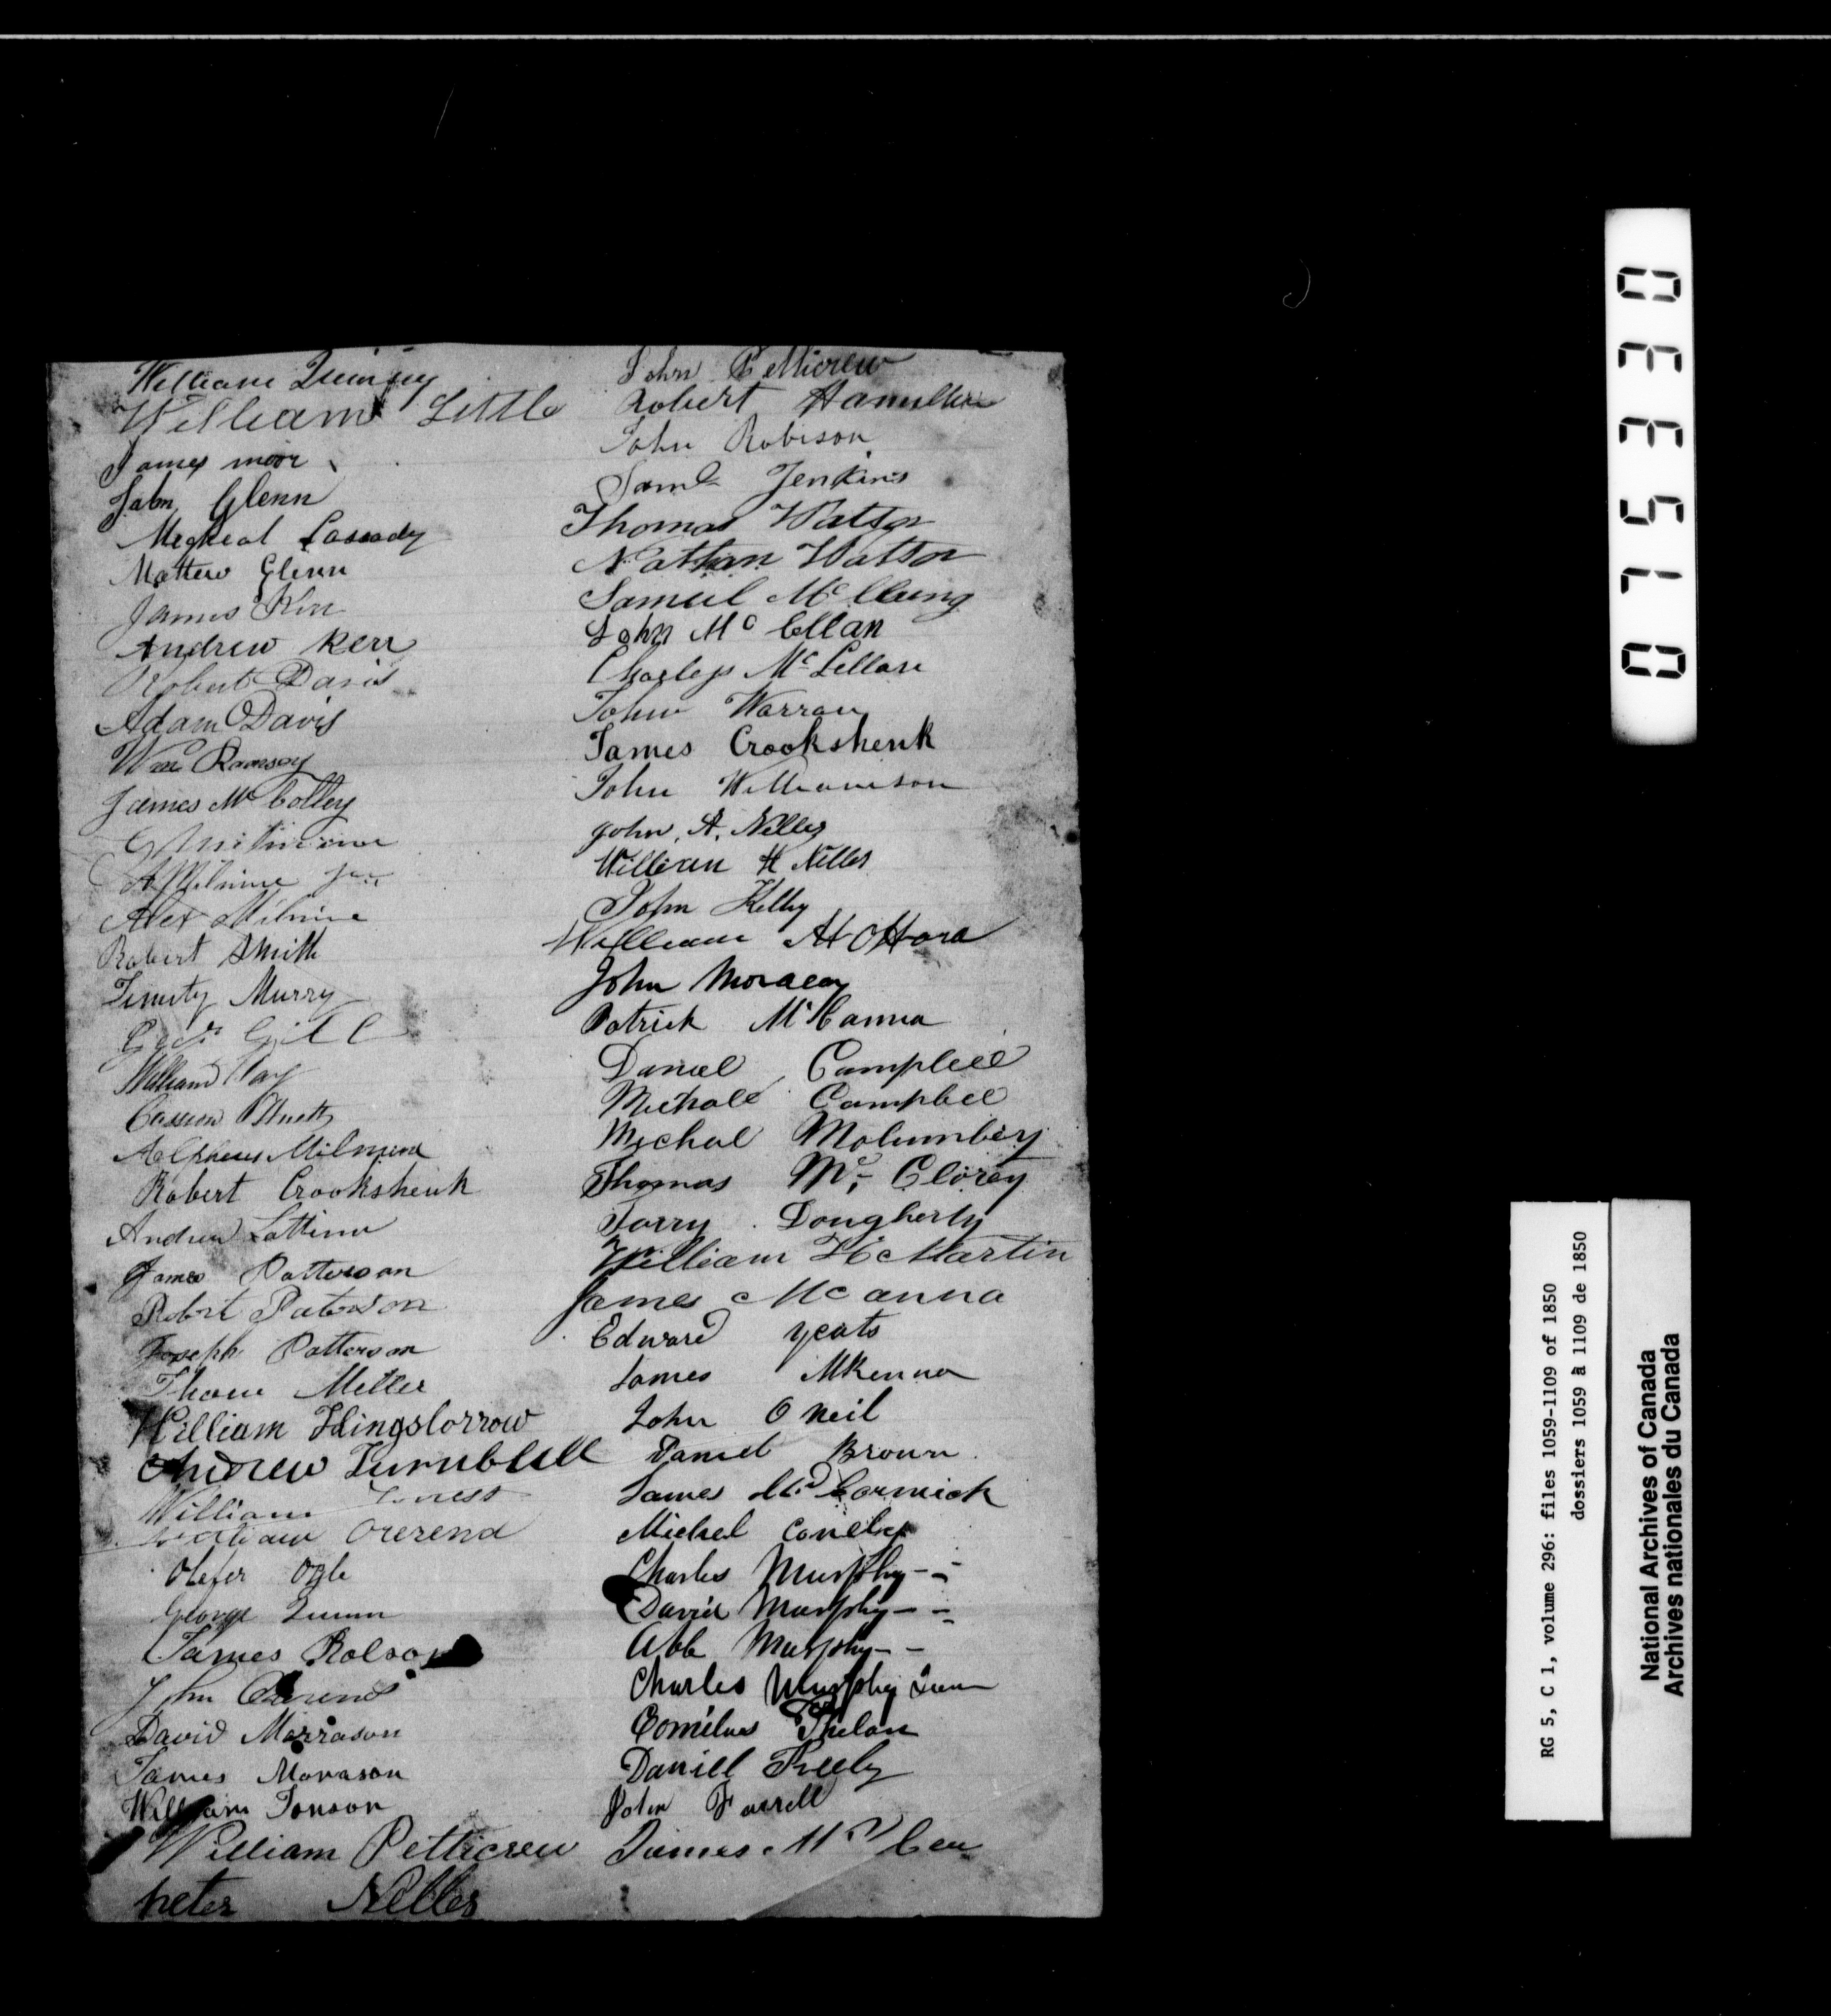 William
William Little
James moor
John Glenn
Megheal Cassady
Mathew Glenn
James Kerr
Andrew Kerr
Robert Davis
Adam Davis
Wm Ramsey
James Mc Colley
A Milmine Jun
Alex Milmine
Robert Smith
Timity Murry
Gill
William
Alpheus Milmine
Robert Crookshenk
Andrew Lattimor
James Patterson
Robert Paterson
Joseph Patterson
Miller
William Hingslorrow
Andrew Turnbull
William
William Overend
Ogle
George Quinn
James Rolson
John
David Morrason
James Morrason
William Jonson
William Petticrew
peter Nelles
John Petticrew
Robert Hamilton
John Robison
Saml Jenkins
Thomas Watson
Nathan Watson
Samuel McClung
John Mc Cllan
Charleys McLellan
John Warran
James Crookshenk
John Williamson
John. A. Nelles
William H Nelles
John Kelly
William H OHara
John
Patrick McCanna
Daniel Campbell
Michale Campbell
Michal Molumbery
Thomas Mc Glorey
Tarry Dougherty
William McMartin
James McCanna
Edward yeats
James McKenna
John O Neil
Daniel Brown
James McCormick
Michel
Charles Murphy
David Murphy
Abb Murphy
Charles Murphy
Cornelius Phelan
Daniel Freely
John Farrell
James
0 7 5 3 3 0
RG 5, C 1, volume 296: files 1059-1109 of 1850
dossiers 1059 à 1109 de 1850
National Archives of Canada
Archives nationales du Canada